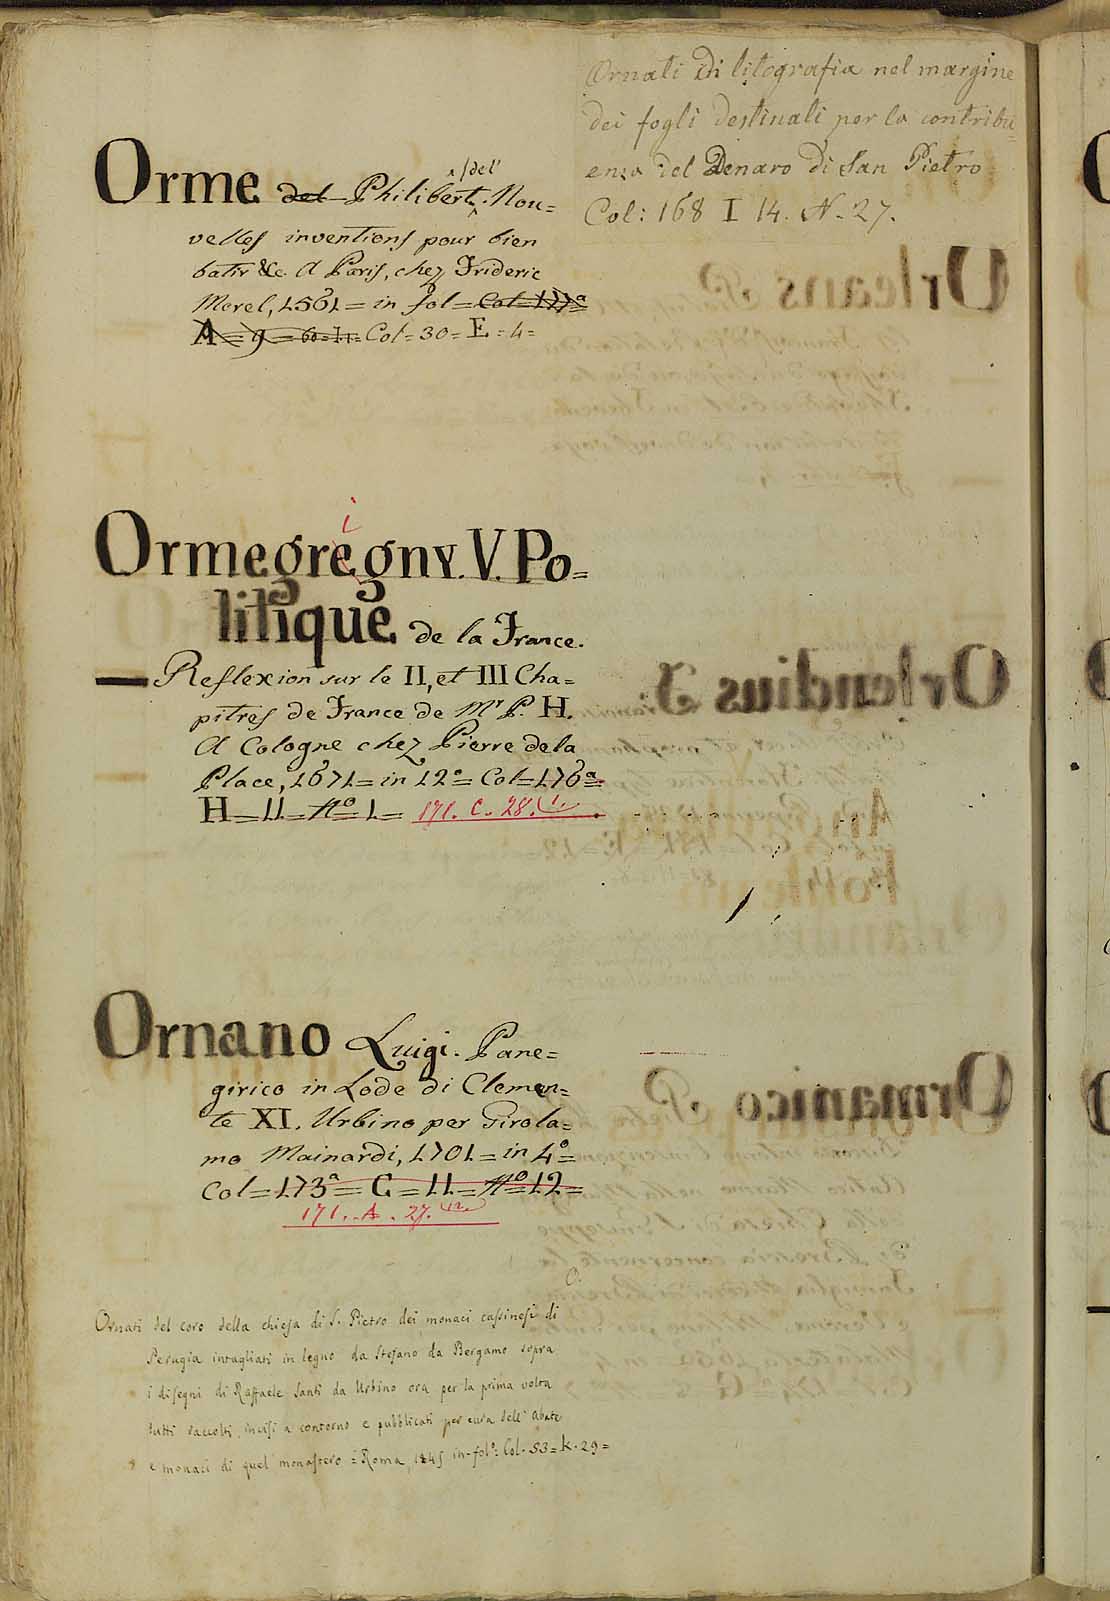 Orme del Philibert (del' Nou=
velles inventions pour bien
batir &c. A Paris, chez Frideric
Morel, 1561= in fol= Col=177ª
A= 9 = Col= 30= E= 4=
Ormegregny. V. Po=
i
litique de la France.
Reflexion sur le II, et III Cha=
pitres de France de Mr P. H.
A Cologne chez Pierre de la
Place, 1671= in 12º= Col=176ª=
H=11=Nº 1= 171. C. 28. (1.
Ornano Luigi. Pane=
girico in Lode di Clemen=
te XI. Urbino per Girola=
mo Mainardi, 1701= in 4º=
Col=173ª= C=11=Nº 12=
171. A. 27. (12.
Ornati del coro della chiesa di S. Pietro dei monaci cassinesi di
Perugia intagliati in legno da Stefano da Bergamo sopra
i disegni di Raffaele Santi da Urbino ora per la prima volta
tutti raccolti, incisi a contorno e pubblicati per cura dell' Abate
e monaci di quel monastero = Roma, 1845 in-folº: Col. 53= K. 29=
Ornati di litografia nel margine
dei fogli destinati per la contribu=
enza del Denaro di San Pietro
Col: 168 I 14. N. 27.